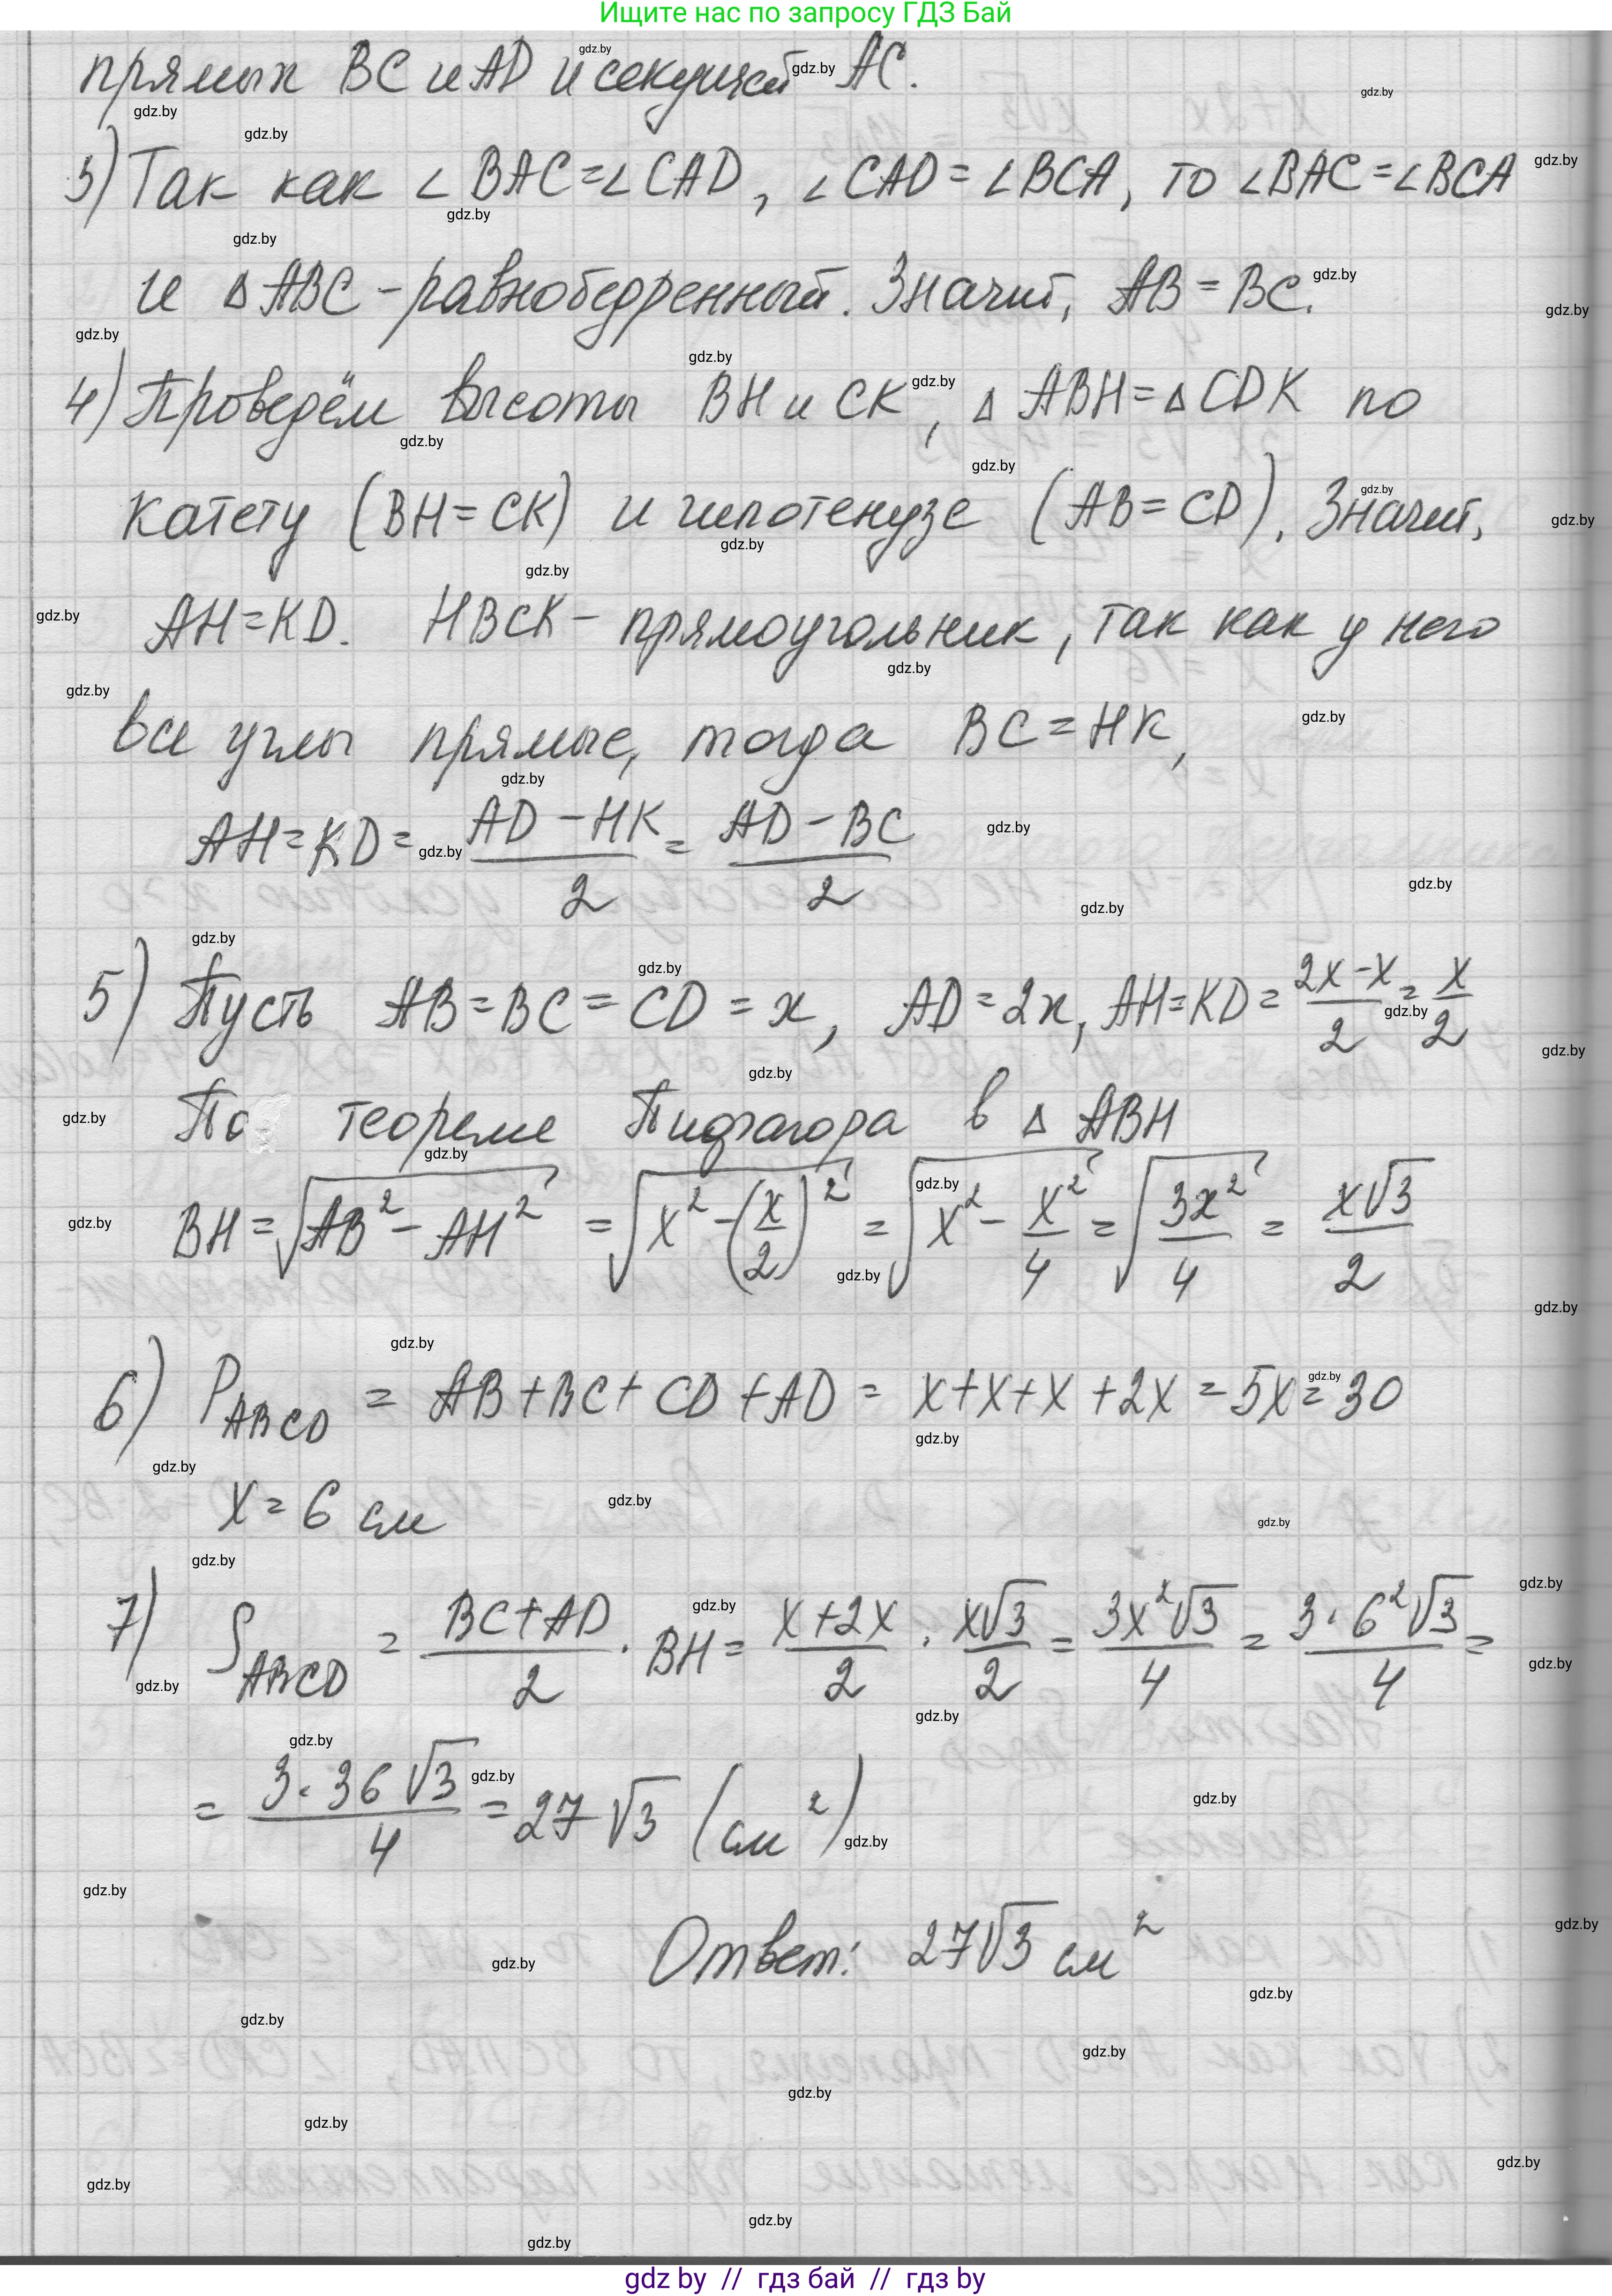 Ищите нас по запросу ГДЗ Бай
прямых BC и AD и секущей AC.
3) Так как ∠BAC=∠CAD, ∠CAD=∠BCA, то ∠BAC=∠BCA
и △ABC - равнобедренный. Значит, AB=BC.
4) Проведём высоты BH и CK, △ABH=△CDK по
катету (BH=CK) и гипотенузе (AB=CD). Значит,
AH=KD. HBCK - прямоугольник, так как у него
все углы прямые, тогда BC=HK,
AH=KD=(AD-HK)/2=(AD-BC)/2
5) Пусть AB=BC=CD=x, AD=2x, AH=KD=(2x-x)/2=x/2
По теореме Пифагора в △ABH
BH=√(AB²-AH²)=√(x²-(x/2)²)=√(x²-x²/4)=√(3x²/4)=x√3/2
6) P_ABCD=AB+BC+CD+AD=x+x+x+2x=5x=30
x=6 см
7) S_ABCD=(BC+AD)/2·BH=(x+2x)/2·x√3/2=3x²√3/4=3·6²√3/4=
=3·36√3/4=27√3 (см²)
Ответ: 27√3 см²
gdz by // гдз бай // гдз by